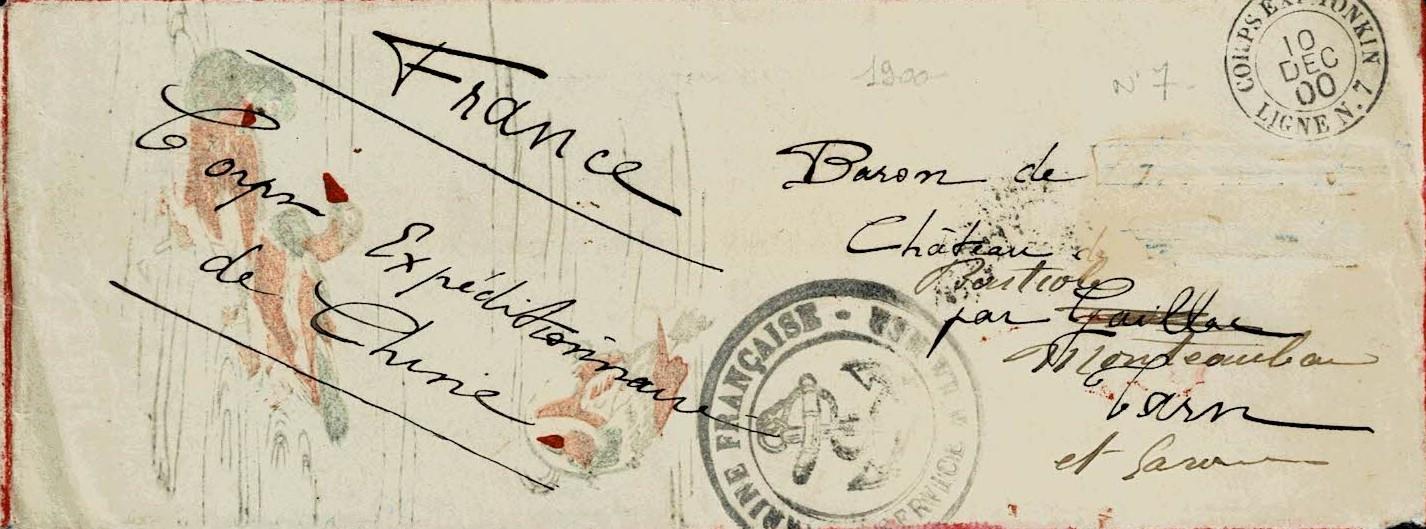 France
Corps Expéditionnaire
de Chine
1900
N° 7
CORPS EXP. TONKIN
10
DEC
00
LIGNE N. 7
Baron de
Château de
par Gaillac
Montauban
Tarn
et Garonne
MARINE FRANÇAISE
SERVICE A LA MER